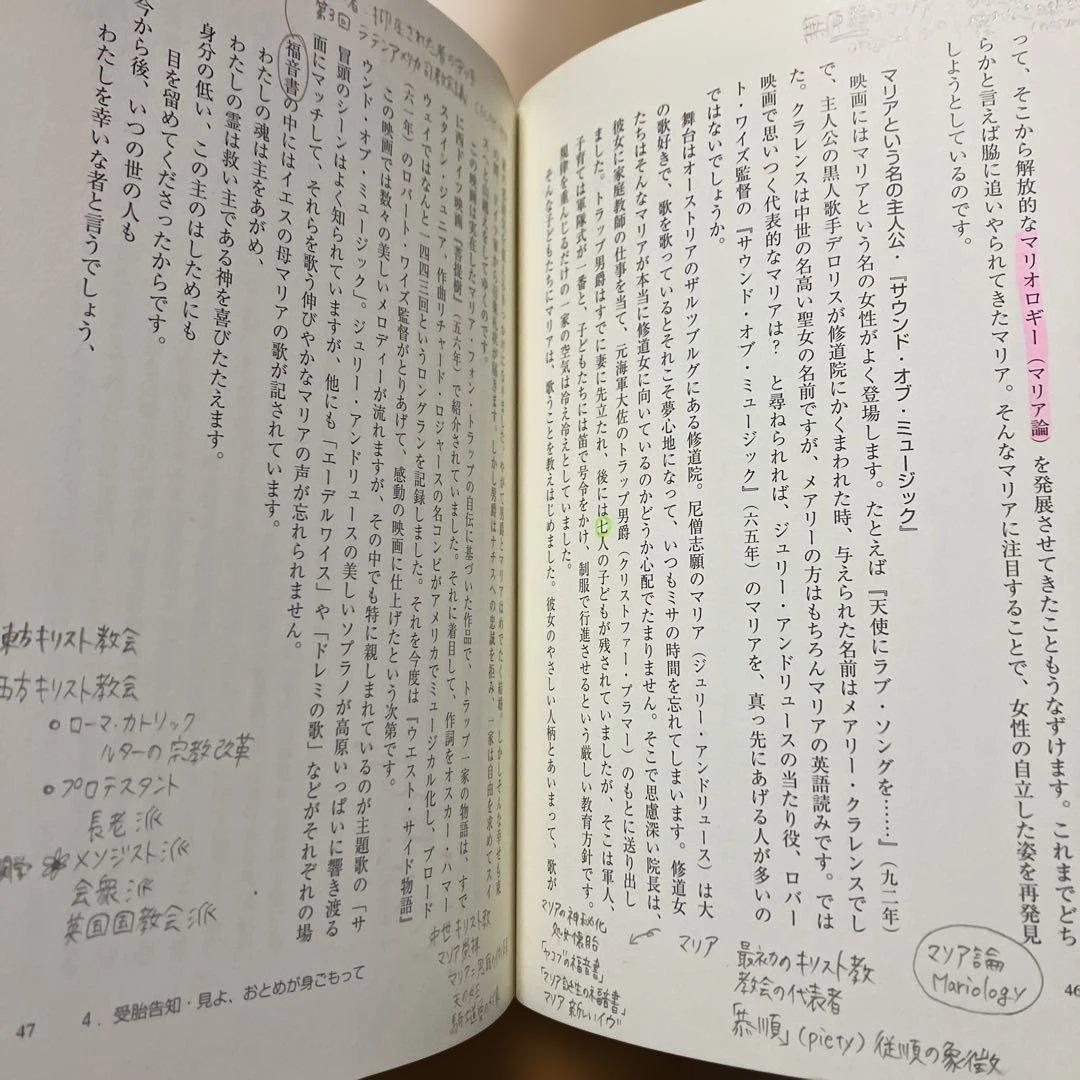 って、そこから解放的なマリオロギー（マリア論）を発展させてきたこともうなずけます。これまでどち
らかと言えば脇に追いやられてきたマリア。そんなマリアに注目することで、女性の自立した姿を再発見
しようとしているのです。
マリアという名の主人公・『サウンド・オブ・ミュージック』
映画にはマリアという名の女性がよく登場します。たとえば『天使にラブ・ソングを……』（九二年）
で、主人公の黒人歌手デロリスが修道院にかくまわれた時、与えられた名前はメアリー・クラレンスでし
た。クラレンスは中世の名高い聖女の名前ですが、メアリーの方はもちろんマリアの英語読みです。では
映画で思いつく代表的なマリアは？　と尋ねられれば、ジュリー・アンドリュースの当たり役、ロバー
ト・ワイズ監督の『サウンド・オブ・ミュージック』（六五年）のマリアを、真っ先にあげる人が多いの
ではないでしょうか。
舞台はオーストリアのザルツブルグにある修道院。尼僧志願のマリア（ジュリー・アンドリュース）は大
の歌好きで、歌を歌っているとそれこそ夢心地になって、いつもミサの時間を忘れてしまいます。修道女
たちはそんなマリアが本当に修道女に向いているのかどうか心配でたまりません。そこで思慮深い院長は、
彼女に家庭教師の仕事を当て、元海軍大佐のトラップ男爵（クリストファー・プラマー）のもとに送り出し
ました。トラップ男爵はすでに妻に先立たれ、後には七人の子どもが残されていましたが、そこは軍人、
子育ては軍隊式が一番と、子どもたちには笛で号令をかけ、制服で行進させるという厳しい教育方針です。
規律を重んじるだけの一家の空気は冷え冷えとしていました。
そんな子どもたちにマリアは、歌うことを教えはじめました。彼女のやさしい人柄とあいまって、歌が
マリア論
Mariology
最初のキリスト教
教会の代表者
「恭順」(piety) 従順の象徴
マリア
マリアの神秘化
処女懐胎
「ヤコブの福音書」
「マリア誕生の福音書」
マリア 新しいイヴ
46
第3回 ラテンアメリカ司教会議
スへと山越えをしてゆくのです。
この映画は実在したマリア・フォン・トラップの自伝に基づいた作品で、トラップ一家の物語は、すで
に西ドイツ映画『菩提樹』（五六年）で紹介されていました。それに着目して、作詞をオスカー・ハマー
スタイン・ジュニア、作曲リチャード・ロジャースの名コンビがアメリカでミュージカル化し、ブロード
ウェイではなんと一四四三回というロングランを記録しました。それを今度は『ウエスト・サイド物語』
（六一年）のロバート・ワイズ監督がとりあげて、感動の映画に仕上げたという次第です。
この映画では数々の美しいメロディーが流れますが、その中でも特に親しまれているのが主題歌の「サ
ウンド・オブ・ミュージック」。ジュリー・アンドリュースの美しいソプラノが高原いっぱいに響き渡る
冒頭のシーンはよく知られていますが、他にも「エーデルワイス」や「ドレミの歌」などがそれぞれの場
面にマッチして、それらを歌う伸びやかなマリアの声が忘れられません。
福音書の中にはイエスの母マリアの歌が記されています。
わたしの魂は主をあがめ、
わたしの霊は救い主である神を喜びたたえます。
身分の低い、この主のはしためにも
目を留めてくださったからです。
今から後、いつの世の人も
わたしを幸いな者と言うでしょう、
東方キリスト教会
西方キリスト教会
ローマ・カトリック
ルターの宗教改革
プロテスタント
長老派
メソジスト派
会衆派
英国国教会派
中世キリスト教
マリア崇拝
天の女王
4．受胎告知・見よ、おとめが身ごもって
47